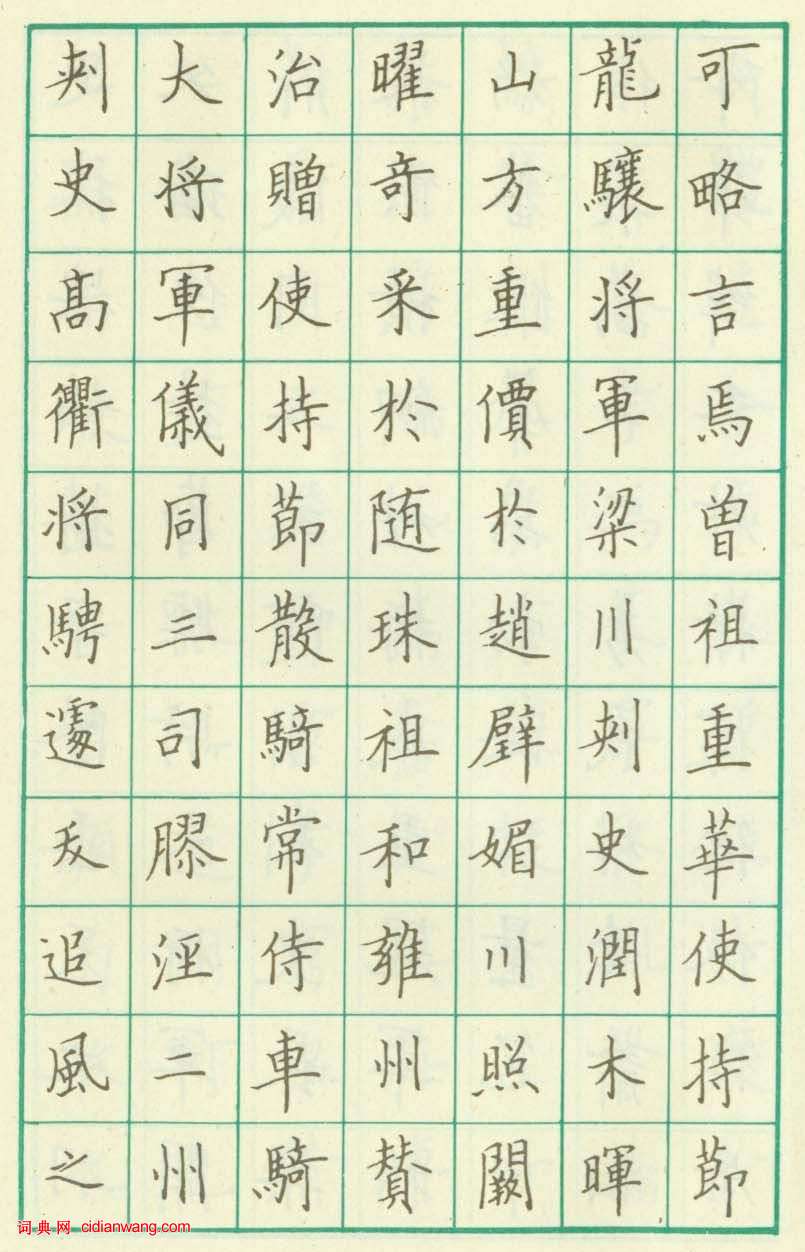 可略言焉曽祖重華使持莭
龍驤将軍梁川刾史潤木暉
山方重價於趙璧媚川照闕
曜奇采於随珠祖和雍州賛
治贈使持莭散騎常侍車騎
大将軍儀同三司膠涇二州
刾史髙衢将騁遽夭追風之
词典网 cidianwang.com